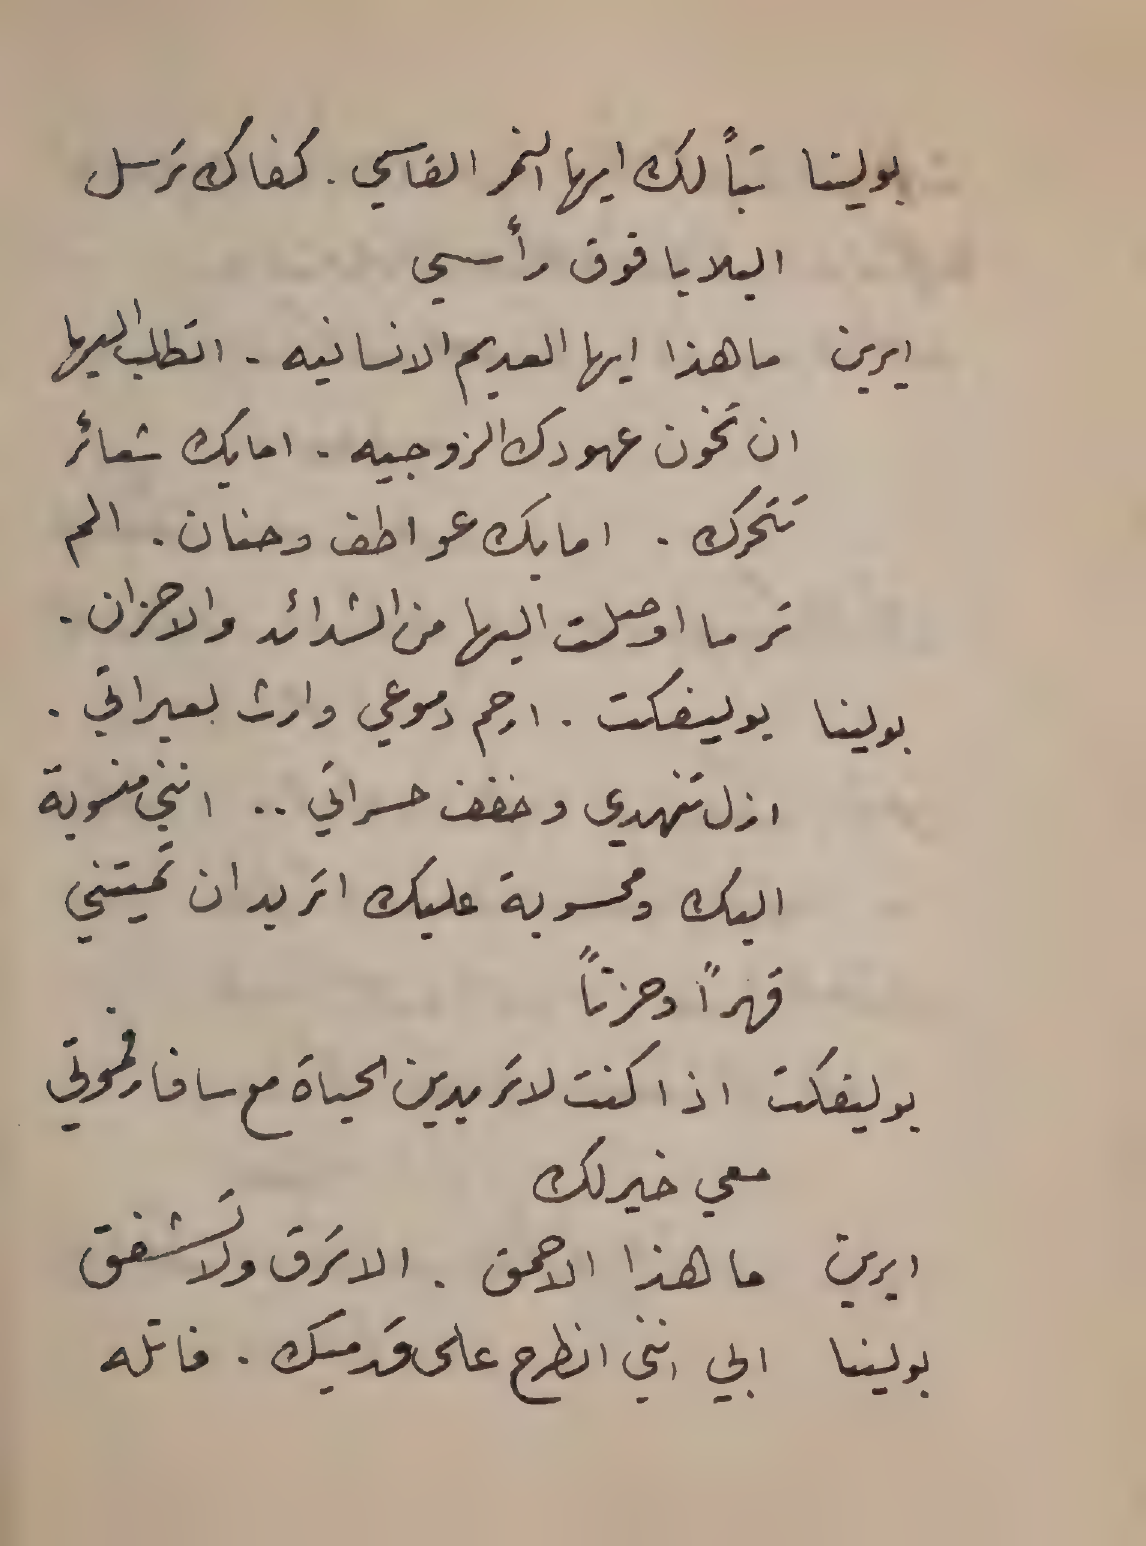 بولينا تباً لك ايها النمر القاسي. كفاك ترسل
البلايا فوق رأسي
ايرين ما هذا ايها العديم الانسانيه. اتطلب اليها
ان تخون عهودك الزوجيه. اما بك شعائر
تتحرك. اما بك عواطف وحنان. الم
تر ما اوصلت اليها من الشدائد والاحزان.
بولينا بوليفكت. ارحم دموعي وارث لعبراتي.
ازل تنهدي وخفف حسراتي.. انني منسوبة
اليك ومحسوبة عليك اتريد ان تميتني
قهراً وحزناً
بوليفكت اذا كنت لا تريدين الحياة مع سافار فموتي
معي خير لك
ايرين ما هذا الاحمق. الا ترق ولا تشفق
بولينا ابي انني انطرح على قدميك. قاتله